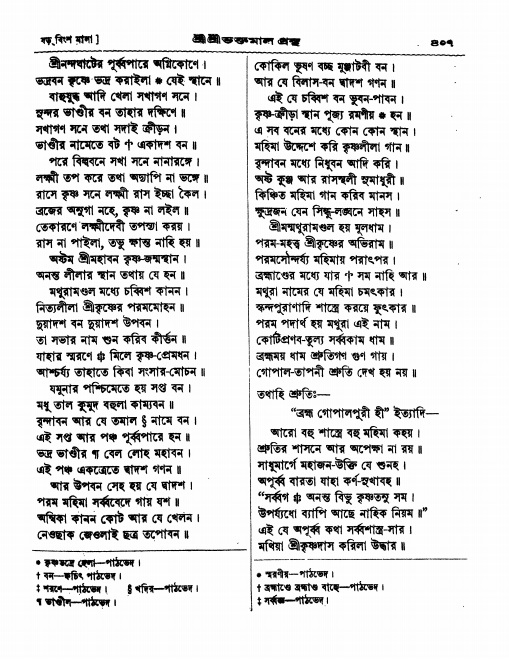 ষড়্‌বিংশ মালা ]
শ্রীশ্রীভক্তমাল গ্রন্থ
৪০৭
শ্রীনন্দঘাটের পূর্ব্বপারে অগ্নিকোণে।
ভদ্রবন কৃষ্ণে ভদ্র করাইলা * যেই স্থানে॥
বাহুযুদ্ধ আদি খেলা সখাগণ সনে।
সুন্দর ভাণ্ডীর বন তাহার দক্ষিণে॥
সখাগণ সনে তথা সদাই ক্রীড়ন।
ভাণ্ডীর নামেতে বট † একাদশ বন॥
পরে বিল্ববনে সখা সনে নানারঙ্গে।
লক্ষ্মী তপ করে তথা অদ্যাপি না ভঙ্গে॥
রাসে কৃষ্ণ সনে লক্ষ্মী রাস ইচ্ছা কৈল।
ব্রজের অনুগা নহে, কৃষ্ণ না লইল॥
তেকারণে লক্ষ্মীদেবী তপস্যা করয়।
রাস না পাইলা, তভু ক্ষান্ত নাহি হয়॥
অষ্টম শ্রীমহাবন কৃষ্ণ-জন্মস্থান।
অনন্ত লীলার স্থান তথায় যে হন॥
মথুরামণ্ডল মধ্যে চব্বিশ কানন।
নিত্যলীলা শ্রীকৃষ্ণের পরমমোহন॥
দ্বাদশ বন দ্বাদশ উপবন।
তা সভার নাম শুন করিব কীর্ত্তন॥
যাহার স্মরণে ‡ মিলে কৃষ্ণ-প্রেমধন।
আশ্চর্য্য তাহাতে কিবা সংসার-মোচন॥
যমুনার পশ্চিমেতে হয় সপ্ত বন।
মধু তাল কুমুদ বহুলা কাম্যবন॥
বৃন্দাবন আর যে তমাল § নামে বন।
এই সপ্ত আর পঞ্চ পূর্ব্বপারে হন॥
ভদ্র ভাণ্ডীর ¶ বেল লোহ মহাবন।
এই পঞ্চ একত্রেতে দ্বাদশ গণন॥
আর উপবন সেহ হয় যে দ্বাদশ।
পরম মহিমা সর্ব্ববেদে গায় যশ॥
অম্বিকা কানন কোট আর যে খেলন।
নেওছাক জেওলাই ছত্র তপোবন॥
* কৃষ্ণভদ্রে হেলা—পাঠভেদ।
† বন—ক্বচিৎ পাঠভেদ।
‡ শরণে—পাঠভেদ। § খদির—পাঠভেদ।
¶ ভাণ্ডীল—পাঠভেদ।
কোকিল ভূষণ বচ্ছ মুঞ্জাটবী বন।
আর যে বিলাস-বন দ্বাদশ গণন॥
এই যে চব্বিশ বন ভুবন-পাবন।
কৃষ্ণ-ক্রীড়া স্থান পূজ্য রমণীয় * হন॥
এ সব বনের মধ্যে কোন কোন স্থান।
মহিমা উদ্দেশে করি কৃষ্ণলীলা গান॥
বৃন্দাবন মধ্যে নিধুবন আদি করি।
অষ্ট কুঞ্জ আর রাসস্থলী সুমাধুরী॥
কিঞ্চিত মহিমা গান করিব মানস।
ক্ষুদ্রজন যেন সিন্ধু-লঙ্ঘনে সাহস॥
শ্রীমন্মথুরামণ্ডল হয় মূলধাম।
পরম-মহত্ত্ব শ্রীকৃষ্ণের অভিরাম॥
পরমসৌন্দর্য্য মহিমায় পরাৎপর।
ব্রহ্মাণ্ডের মধ্যে যার † সম নাহি আর॥
মথুরা নামের যে মহিমা চমৎকার।
স্কন্দপুরাণাদি শাস্ত্রে করয়ে ফুৎকার॥
পরম পদার্থ হয় মথুরা এই নাম।
কোটিপ্রণব-তুল্য সর্ব্বকাম ধাম॥
ব্রহ্মময় ধাম শ্রুতিগণ গুণ গায়।
গোপাল-তাপনী শ্রুতি দেখ হয় নয়॥
তথাহি শ্রুতিঃ—
“ব্রহ্ম গোপালপুরী হী” ইত্যাদি—
আরো বহু শাস্ত্রে বহু মহিমা কহয়।
শ্রুতির শাসনে আর অপেক্ষা না রয়॥
সাধুমার্গে মহাজন-উক্তি যে শুনহ।
অপূর্ব্ব বারতা যাহা কর্ণ-সুখাবহ॥
“সর্ব্বগ ‡ অনন্ত বিভু কৃষ্ণতনু সম।
উপর্য্যধো ব্যাপি আছে নাহিক নিয়ম॥”
এই যে অপূর্ব্ব কথা সর্ব্বশাস্ত্র-সার।
মথিয়া শ্রীকৃষ্ণদাস করিলা উদ্ধার॥
* স্মরণীয়—পাঠভেদ।
† ব্রহ্মাণ্ডে ব্রহ্মাণ্ড বাছে—পাঠভেদ।
‡ সর্ব্বজ্ঞ—পাঠভেদ।